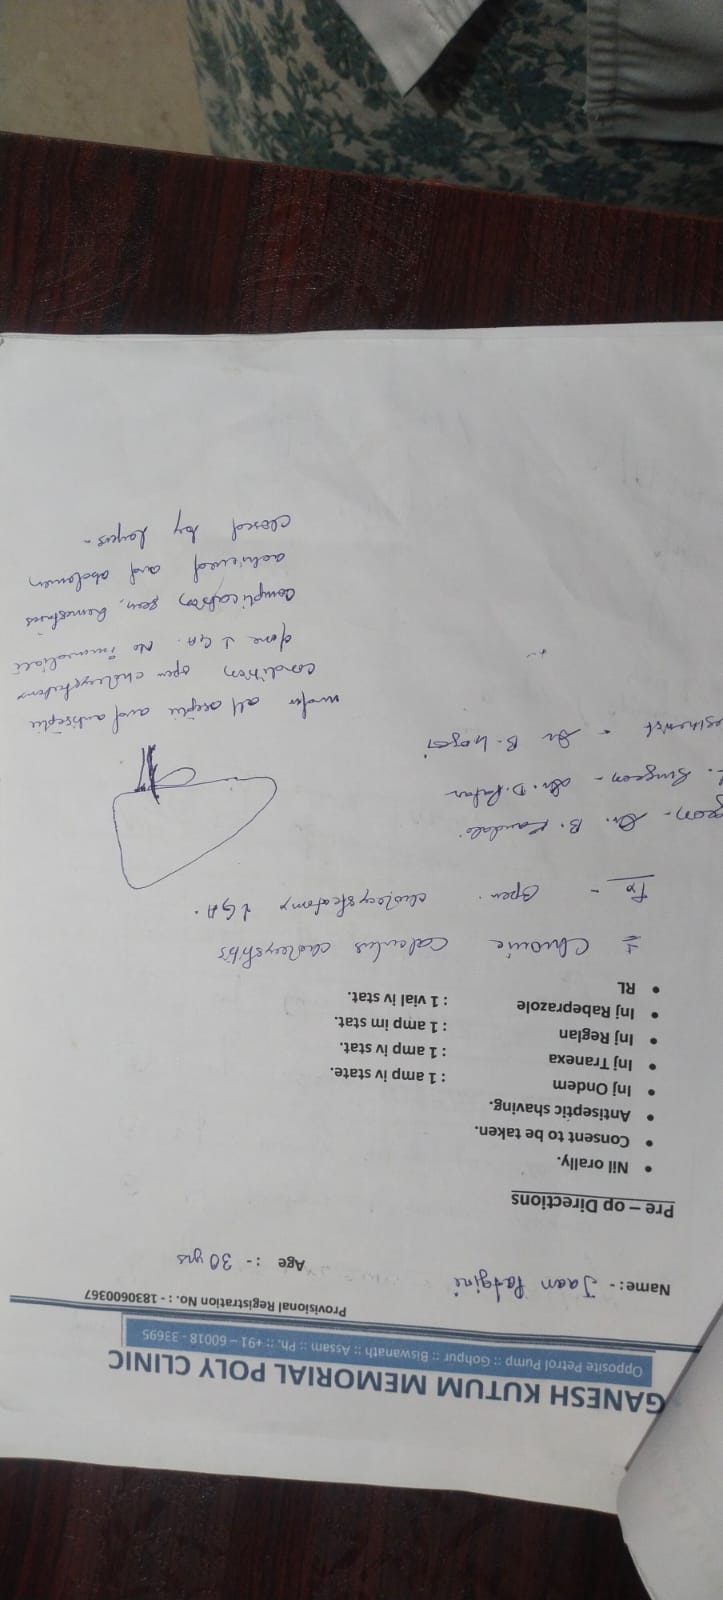 GANESH KUTUM MEMORIAL POLY CLINIC
Opposite Petrol Pump :: Gohpur :: Biswanath :: Assam :: Ph. :: +91 – 60018 - 33695
Provisional Registration No. : - 1830600367
Name: - Jaan Age :- 30 yrs
Pre – op Directions
• Nil orally.
• Consent to be taken.
• Antiseptic shaving.
• Inj Ondem : 1 amp iv state.
• Inj Tranexa : 1 amp iv stat.
• Inj Reglan : 1 amp im stat.
• Inj Rabeprazole : 1 vial iv stat.
• RL
Chronic calculus cholecystitis
Open cholecystectomy GA.
geon - Dr. B.
Surgeon - Dr. D.
esthetist - Dr B.
under all aseptic and antiseptic
condition open cholecystectomy
done GA. No immediate
complication seen, hemostasis
achieved and abdomen
closed by layers.